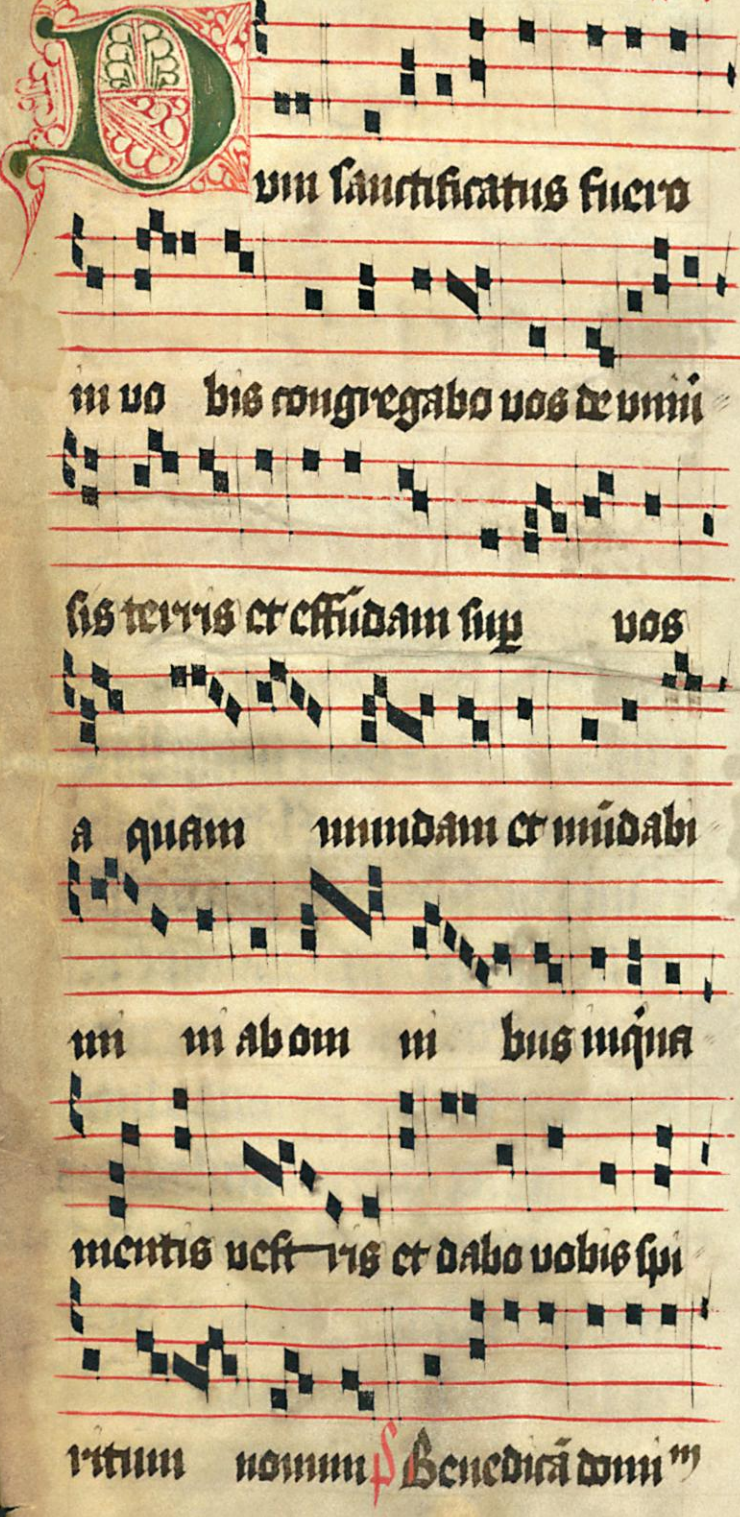 Dum sanctificatus fuero
in vo bis congregabo vos de vniu̅
sis terris et effu̅dam sup̲ vos
a quam mundam et mu̅dabi
mi ni ab om ni bus inqͥna
mentis vest ris et dabo vobis spi
ritum nouum P̲ Benedica̅ domiᵐ